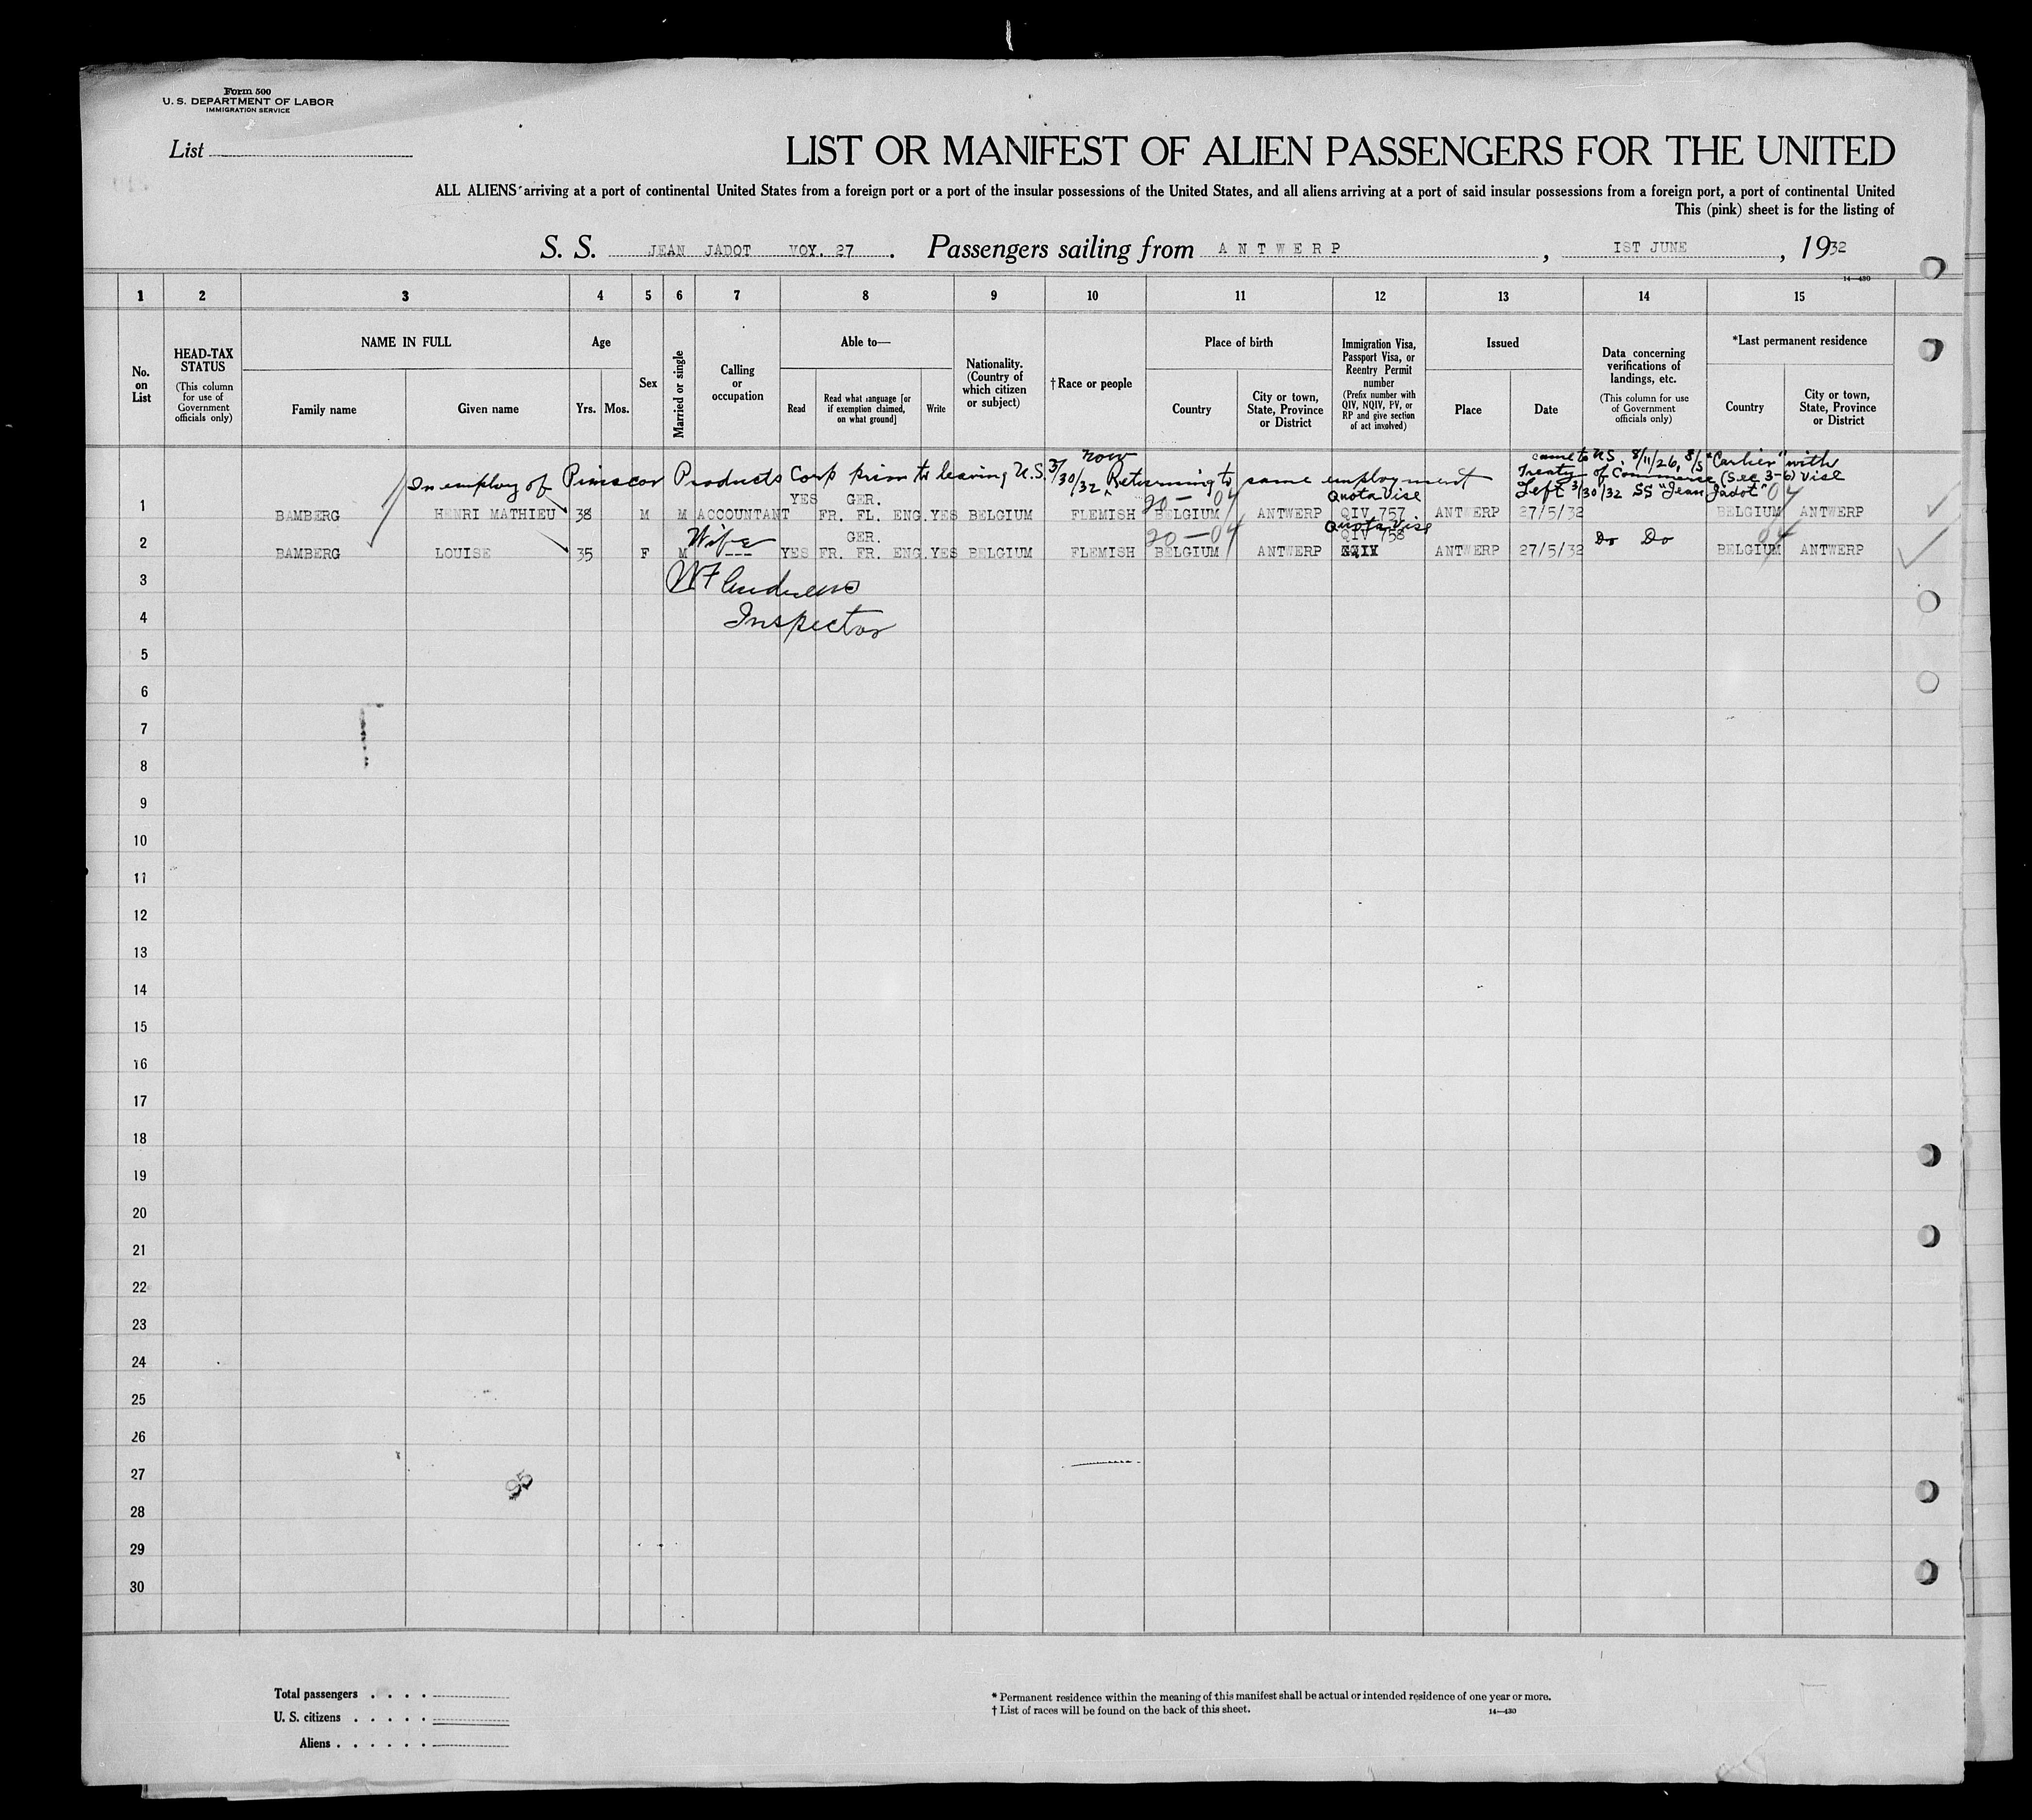 Form 500
U. S. DEPARTMENT OF LABOR
IMMIGRATION SERVICE
List
LIST OR MANIFEST OF ALIEN PASSENGERS FOR THE UNITED
ALL ALIENS arriving at a port of continental United States from a foreign port or a port of the insular possessions of the United States, and all aliens arriving at a port of said insular possessions from a foreign port, a port of continental United
This (pink) sheet is for the listing of
S. S. JEAN JADOT VOY. 27. Passengers sailing from ANTWERP, 1ST JUNE, 1932
14—430
1 2 3 4 5 6 7 8 9 10 11 12 13 14 15
No. on List
HEAD-TAX STATUS
(This column for use of Government officials only)
NAME IN FULL
Family name
Given name
Age
Yrs. Mos.
Sex
Married or single
Calling or occupation
Able to—
Read
Read what language [or if exemption claimed, on what ground]
Write
Nationality. (Country of which citizen or subject)
†Race or people
Place of birth
Country
City or town, State, Province or District
Immigration Visa, Passport Visa, or Reentry Permit number
(Prefix number with QIV, NQIV, PV, or RP and give section of act involved)
Issued
Place
Date
Data concerning verifications of landings, etc.
(This column for use of Government officials only)
*Last permanent residence
Country
City or town, State, Province or District
In employ of Products Corp prior to leaving U.S. 3/30/32 now Returning to same employment
came to US 8/11/26, S/S "Carlier" with
Treaty of Commerce (Sec 3-6) Visé
Left 3/30/32 SS "Jean Jadot"
YES GER. 20 — 04 Quota Vise 04
1 BAMBERG HENRI MATHIEU 38 M M ACCOUNTANT FR. FL. ENG. YES BELGIUM FLEMISH BELGIUM ANTWERP QIV 757 ANTWERP 27/5/32 BELGIUM ANTWERP
Wife GER. 20—04 Quota Vise QIV 758 Do Do 04
2 BAMBERG LOUISE 35 F M --- YES FR. FR. ENG. YES BELGIUM FLEMISH BELGIUM ANTWERP ANTWERP 27/5/32 BELGIUM ANTWERP
3 W F Andrews
4 Inspector
5
6
7
8
9
10
11
12
13
14
15
16
17
18
19
20
21
22
23
24
25
26
27 95
28
29
30
Total passengers
U. S. citizens
Aliens
* Permanent residence within the meaning of this manifest shall be actual or intended residence of one year or more.
† List of races will be found on the back of this sheet. 14—430